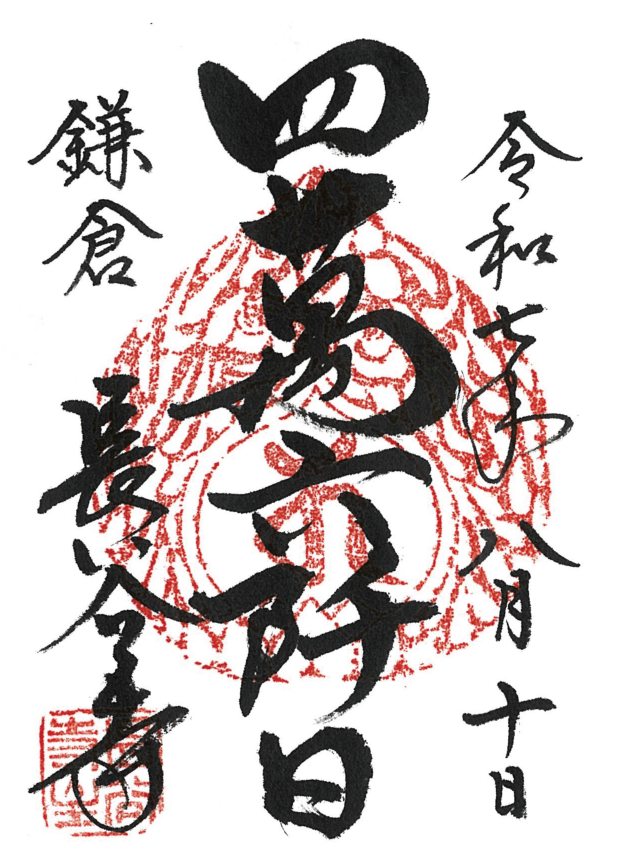 令和七年八月十日
四萬六阡日
鎌倉
長谷寺